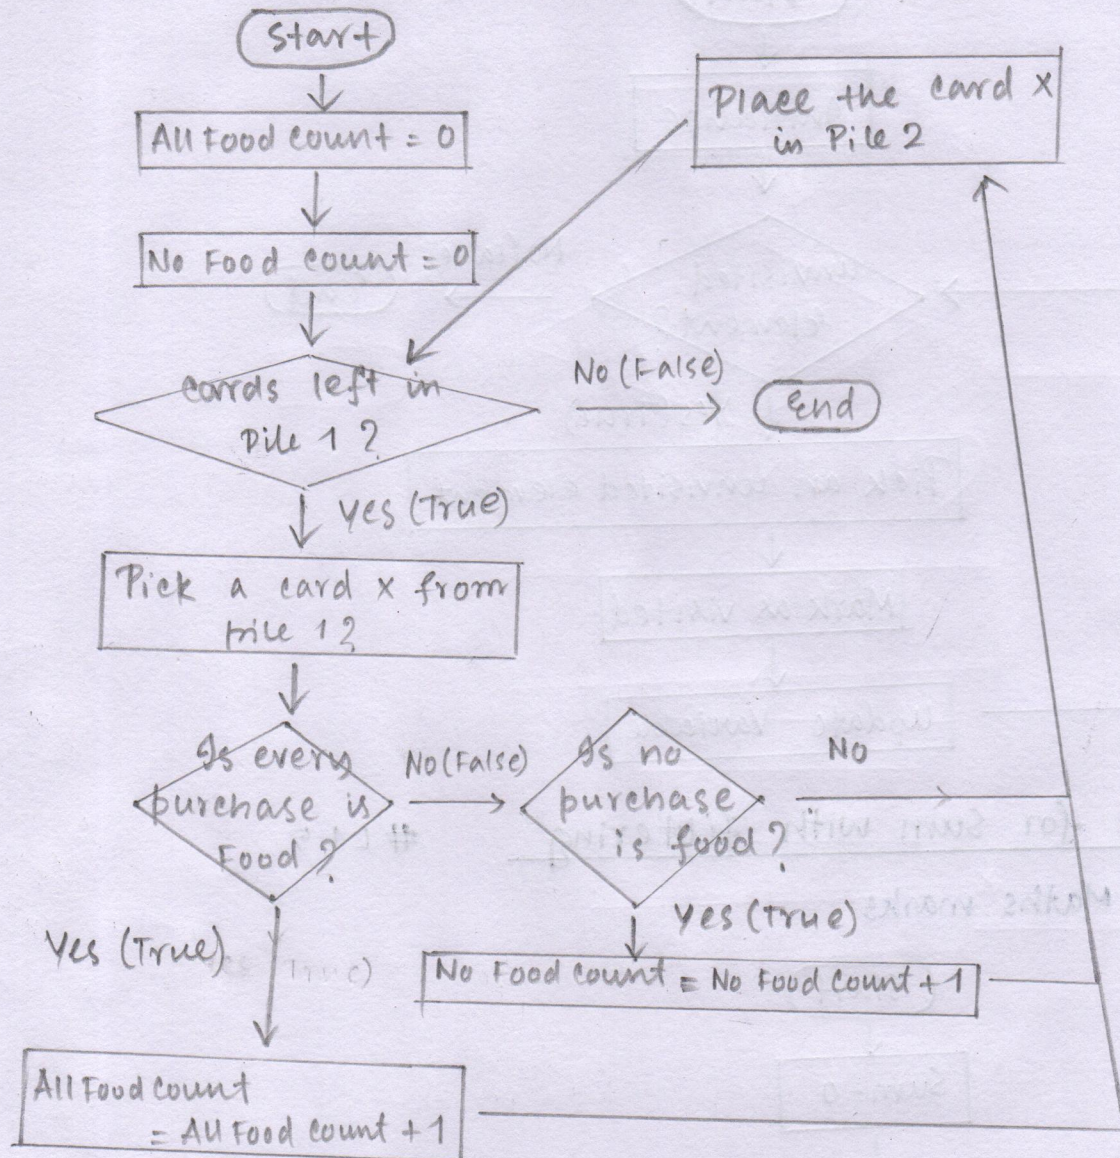 Start
All Food count = 0
No Food count = 0
Place the card X
in Pile 2
carrds left in
Pile 1 ?
No (False)
End
Yes (True)
Pick a card x from
pile 1 ?
Is every
purchase is
Food ?
No (False)
Is no
purchase
is food ?
No
Yes (True)
Yes (True)
No Food count = No Food count + 1
All Food count
= All Food count + 1